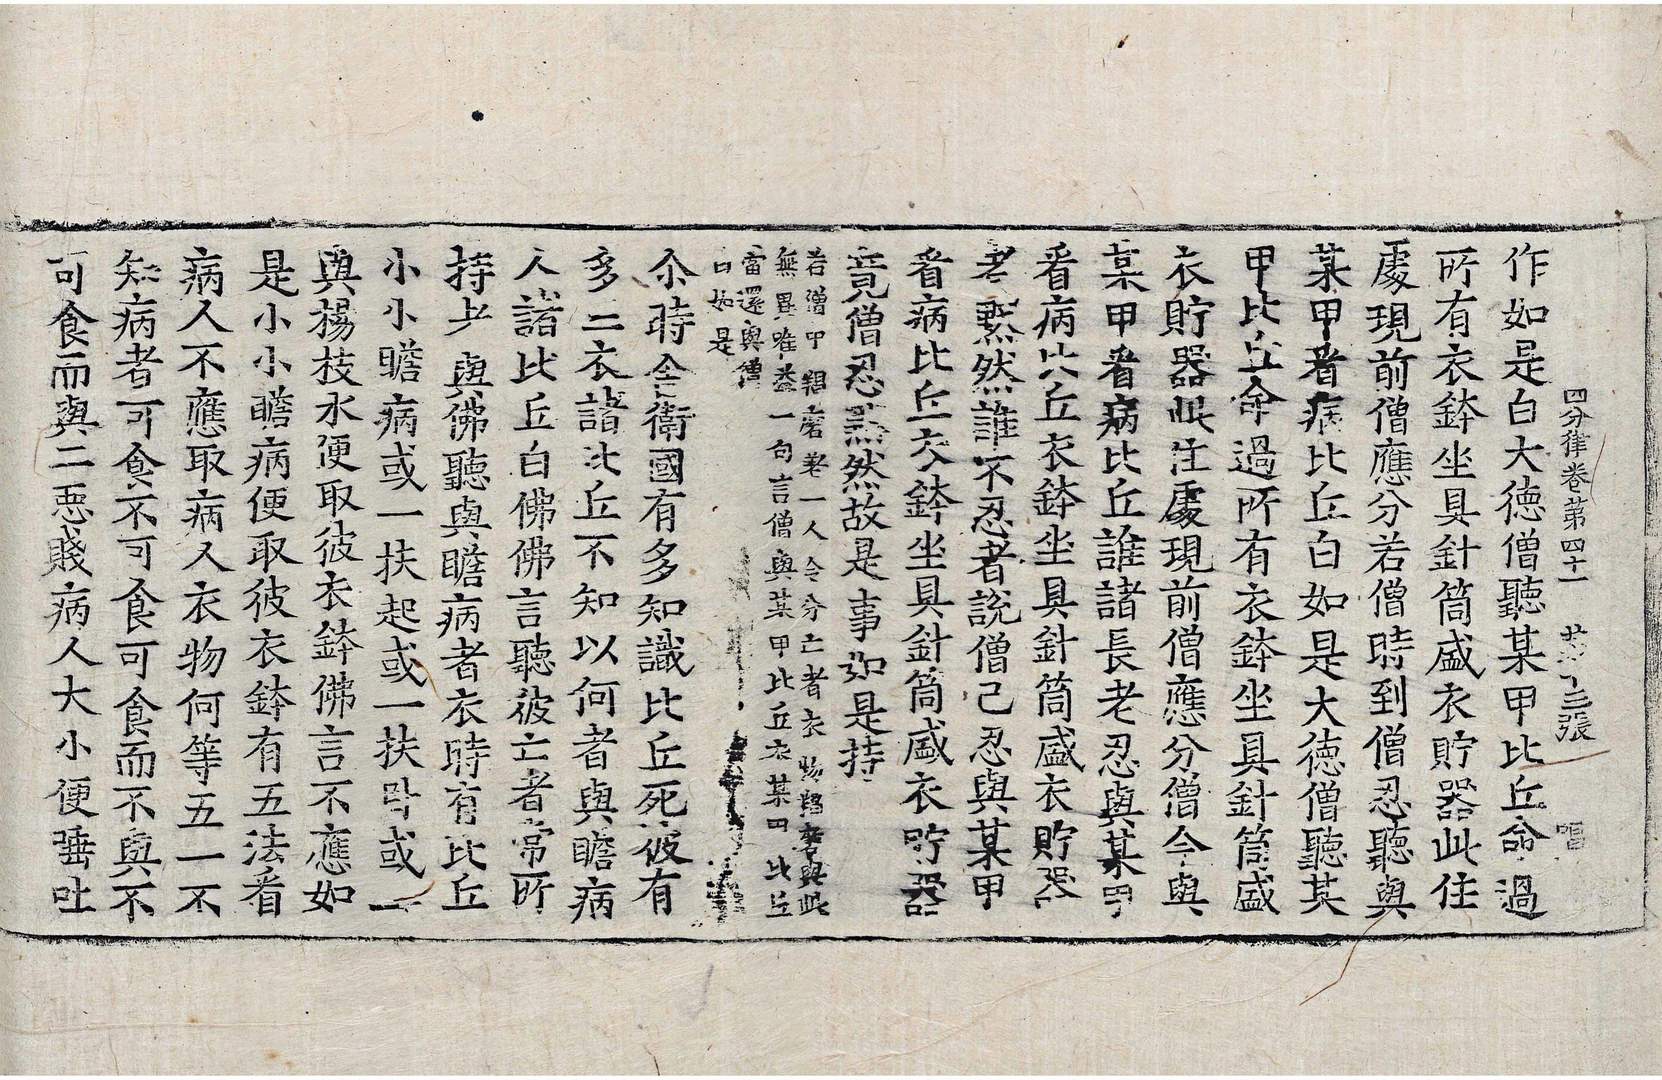 四分律卷第四十一 第十三張 唱
作如是白大德僧聽某甲比丘命過
所有衣鉢坐具針筒盛衣貯器此住
處現前僧應分若僧時到僧忍聽與
某甲看病比丘白如是大德僧聽某
甲比丘命過所有衣鉢坐具針筒盛
衣貯器此住處現前僧應分僧今與
某甲看病比丘誰諸長老忍與某甲
看病比丘衣鉢坐具針筒盛衣貯器
者默然誰不忍者說僧已忍與某甲
看病比丘衣鉢坐具針筒盛衣貯器
竟僧忍默然故是事如是持
若僧中羯磨差一人令分亡者衣物羯磨與此
無異唯益一句言僧與某甲比丘衣某甲比丘
當還與僧
白如是
尒時舍衛國有多知識比丘死彼有
多二衣諸比丘不知以何者與瞻病
人諸比丘白佛佛言聽彼亡者常所
持者與佛聽與瞻病者衣時有比丘
小小瞻病或一扶起或一扶臥或一
與楊枝水便取彼衣鉢佛言不應如
是小小瞻病便取彼衣鉢有五法看
病人不應取病人衣物何等五一不
知病者可食不可食可食而不與不
可食而與二惡賤病人大小便唾吐